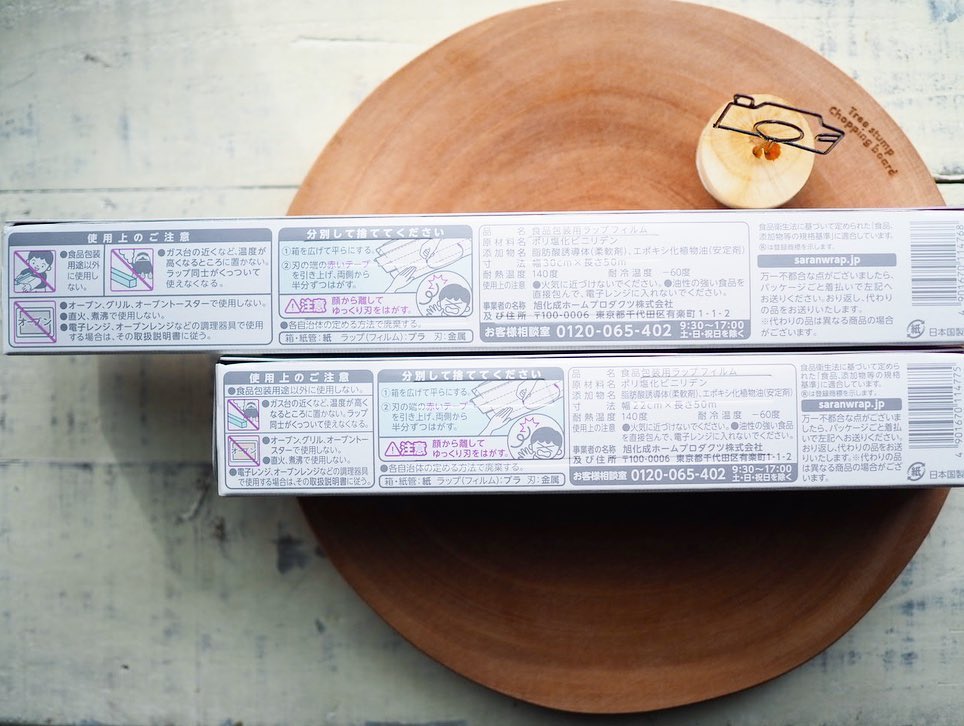 Tree stump
Chopping board
使用上のご注意
●食品包装
用途以外
に使用し
ない。
●ガス台の近くなど、温度が
高くなるところに置かない。
ラップ同士がくっついて
使えなくなる。
●オーブン、グリル、オーブントースターで使用しない。
●直火、煮沸で使用しない。
●電子レンジ、オーブンレンジなどの調理器具で使用
する場合は、その取扱説明書に従う。
分別して捨ててください
①箱を広げて平らにする。
②刃の端の赤いテープ
を引き上げ、両側から
半分ずつはがす。
注意 顔から離して
ゆっくり刃をはがす。
●各自治体の定める方法で廃棄する。
箱・紙管:紙 ラップ(フィルム):プラ 刃:金属
品名 食品包装用ラップフィルム
原材料名 ポリ塩化ビニリデン
添加物名 脂肪酸誘導体(柔軟剤)、エポキシ化植物油(安定剤)
寸法 幅30cm×長さ50m
耐熱温度 140度 耐冷温度 −60度
使用上の注意 ●火気に近づけないでください。●油性の強い食品を
直接包んで、電子レンジに入れないでください。
事業者の名称 旭化成ホームプロダクツ株式会社
及び住所 〒100-0006 東京都千代田区有楽町1-1-2
お客様相談室 0120-065-402 9:30~17:00
土・日・祝日を除く
食品衛生法に基づいて定められた「食品、
添加物等の規格基準」に適合しています。
Ⓡは登録商標を示します。
saranwrap.jp
万一不都合な点がございましたら、
パッケージごと着払いで左記へ
お送りください。おり返し、代わり
の品をお送りいたします。
※代わりの品は異なる商品の場合
がございます。
紙
日本国製
使用上のご注意
●食品包装用途以外に使用しない。
●ガス台の近くなど、温度が高く
なるところに置かない。ラップ
同士がくっついて使えなくなる。
●オーブン、グリル、オーブントー
スターで使用しない。
●直火、煮沸で使用しない。
●電子レンジ、オーブンレンジなどの調理器具
で使用する場合は、その取扱説明書に従う。
分別して捨ててください
①箱を広げて平らにする。
②刃の端の赤いテープ
を引き上げ、両側から
半分ずつはがす。
注意 顔から離して
ゆっくり刃をはがす。
●各自治体の定める方法で廃棄する。
箱・紙管:紙 ラップ(フィルム):プラ 刃:金属
品名 食品包装用ラップフィルム
原材料名 ポリ塩化ビニリデン
添加物名 脂肪酸誘導体(柔軟剤)、エポキシ化植物油(安定剤)
寸法 幅22cm×長さ50m
耐熱温度 140度 耐冷温度 −60度
使用上の注意 ●火気に近づけないでください。●油性の強い食品
を直接包んで、電子レンジに入れないでください。
事業者の名称 旭化成ホームプロダクツ株式会社
及び住所 〒100-0006 東京都千代田区有楽町1-1-2
お客様相談室 0120-065-402 9:30~17:00
土・日・祝日を除く
食品衛生法に基づいて定めら
れた「食品、添加物等の規格基
準」に適合しています。
Ⓡは登録商標を示します。
saranwrap.jp
万一不都合な点がございまし
たら、パッケージごと着払い
で左記へお送りください。お
り返し、代わりの品をお送り
いたします。※代わりの品
は異なる商品の場合がござ
います。
4 901670 114775
紙
日本国製